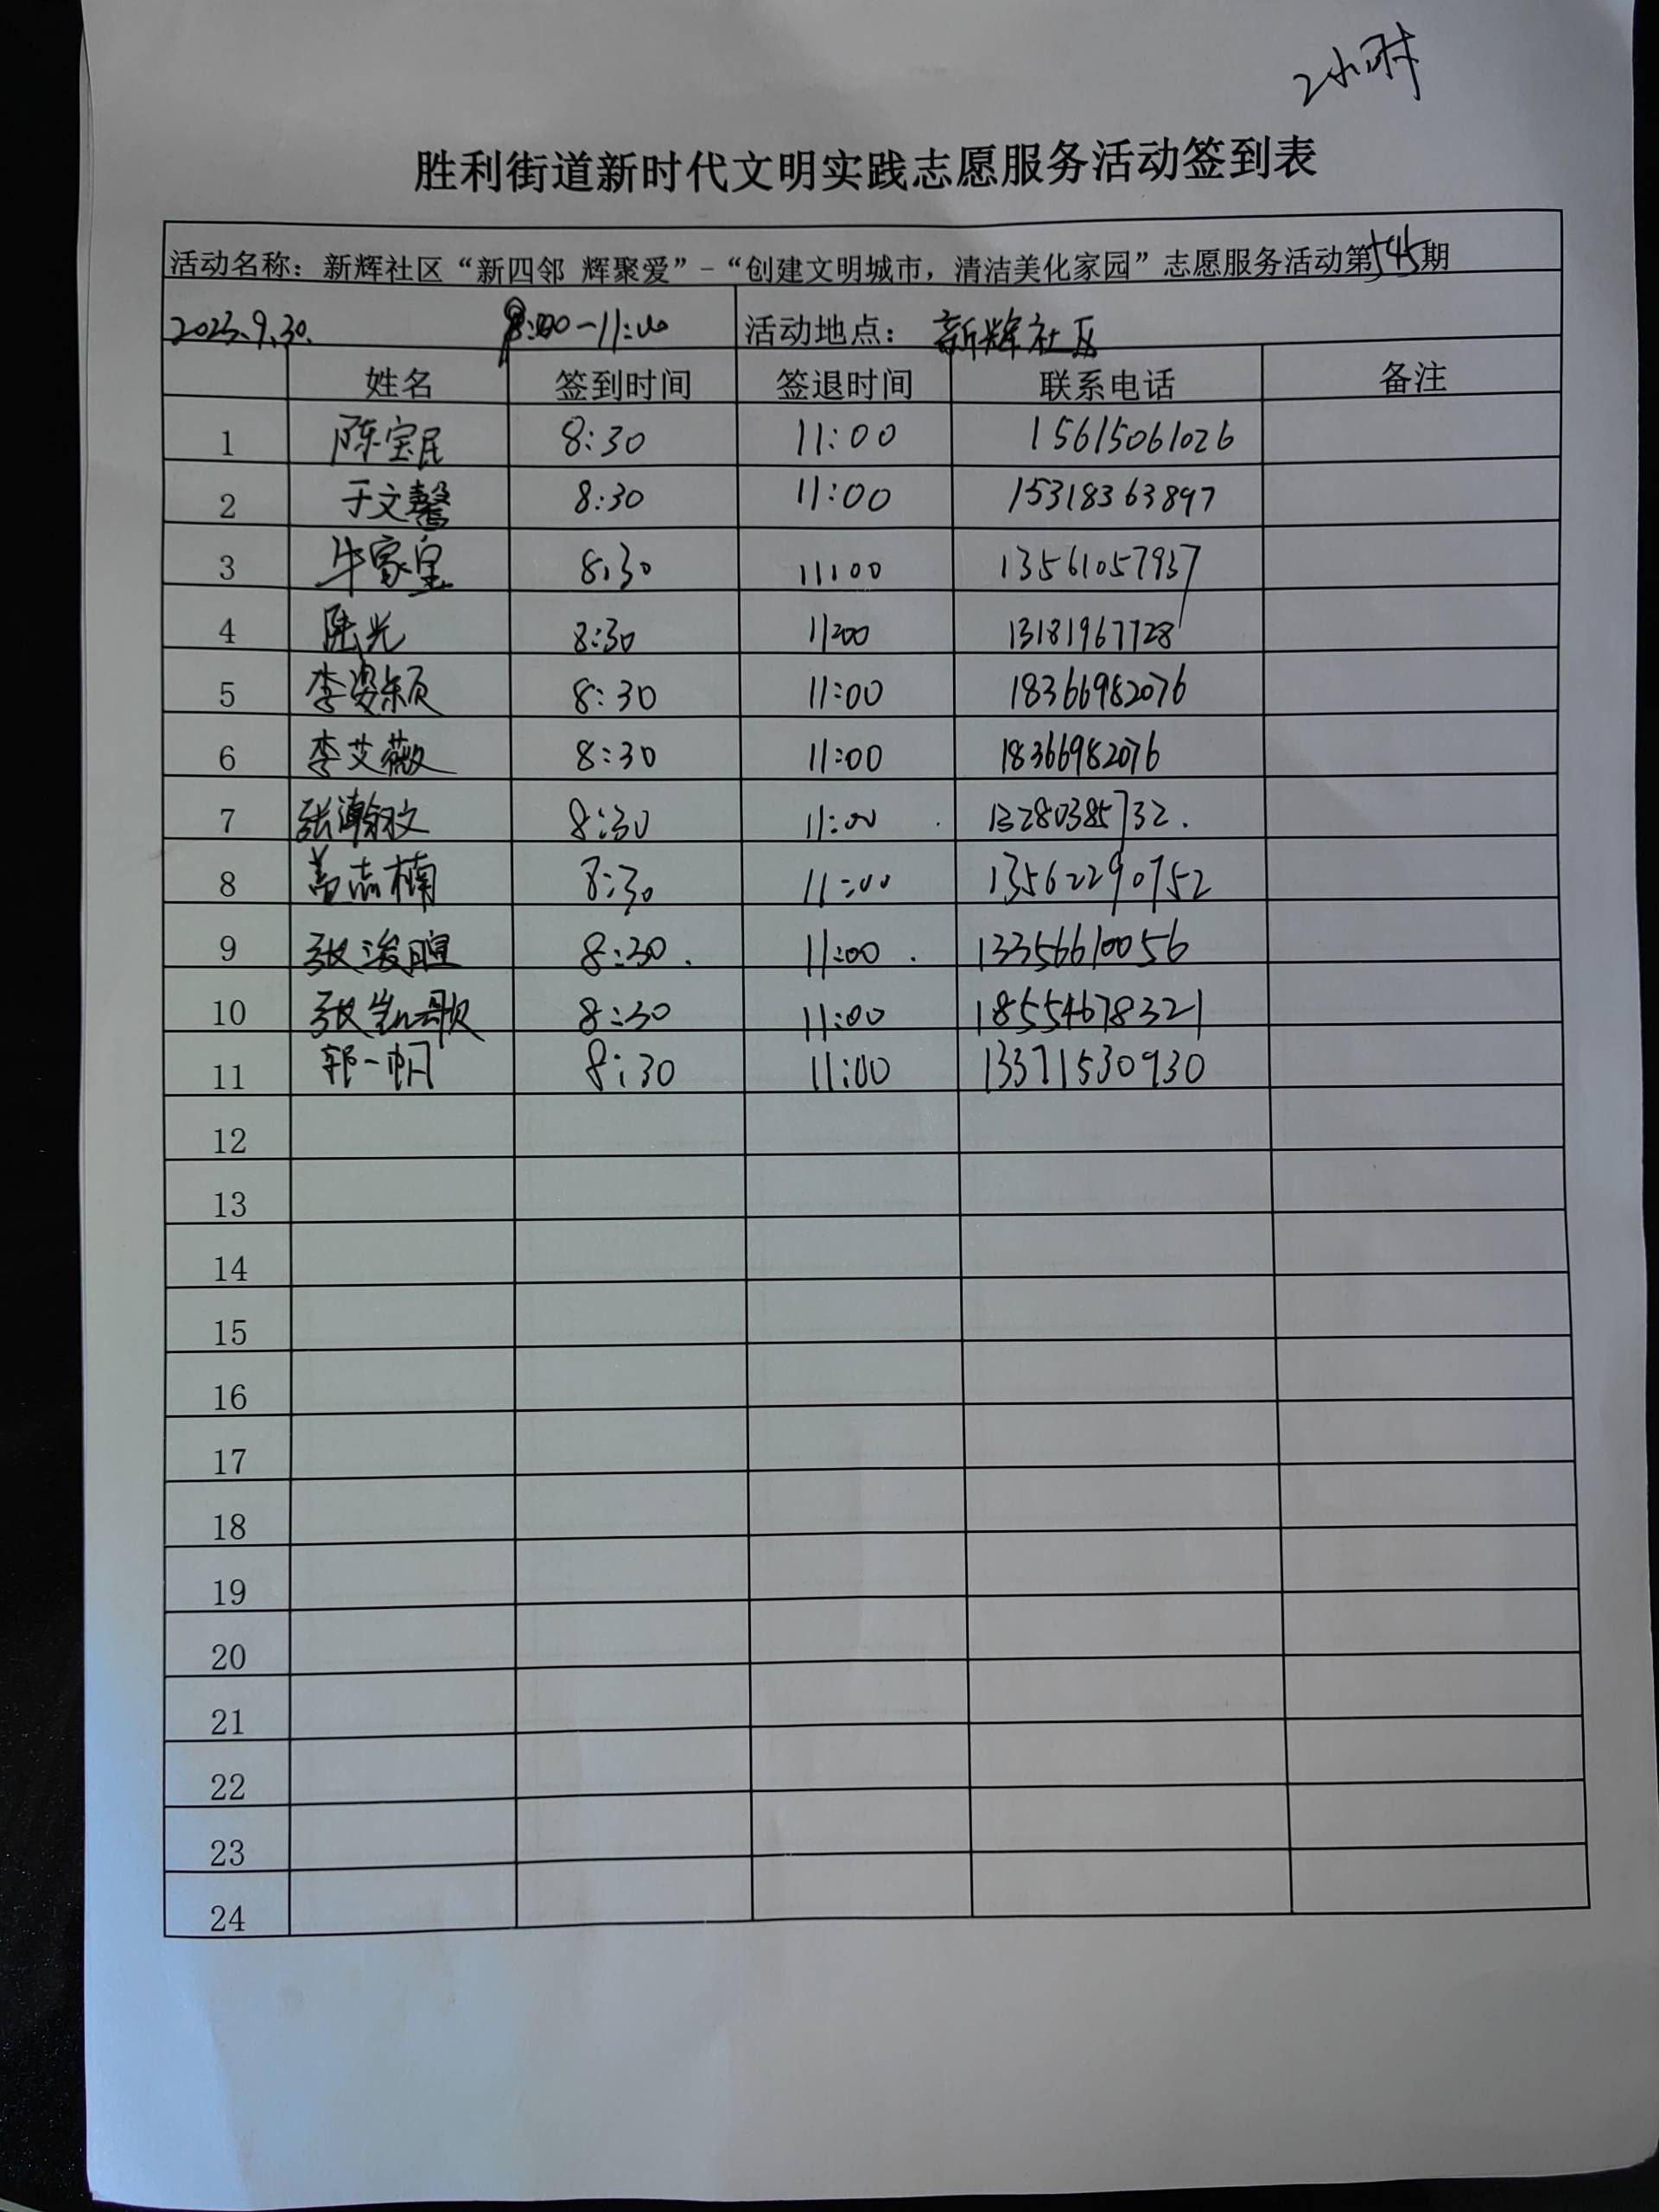 2小时
胜利街道新时代文明实践志愿服务活动签到表
活动名称：新辉社区“新四邻 辉聚爱”-“创建文明城市，清洁美化家园”志愿服务活动第545期
2023.9.30. :00-11:00 活动地点：新辉社区
姓名 签到时间 签退时间 联系电话 备注
1 陈宝民 8:30 11:00 15615061026
2 于文馨 8:30 11:00 15318363897
3 牛家皇 8:30 11:00 13561057937
4 陆光 8:30 11:00 13181967728
5 李姿颖 8:30 11:00 18366982076
6 李艾薇 8:30 11:00 18366982076
7 张瀚文 8:30 11:00 13280385732.
8 盖志楠 8:30 11:00 13562290752
9 张浚暄 8:30. 11:00. 13356610056
10 张凯歌 8:30 11:00 18554678321
11 郭一帆 8:30 11:00 13371530930
12
13
14
15
16
17
18
19
20
21
22
23
24